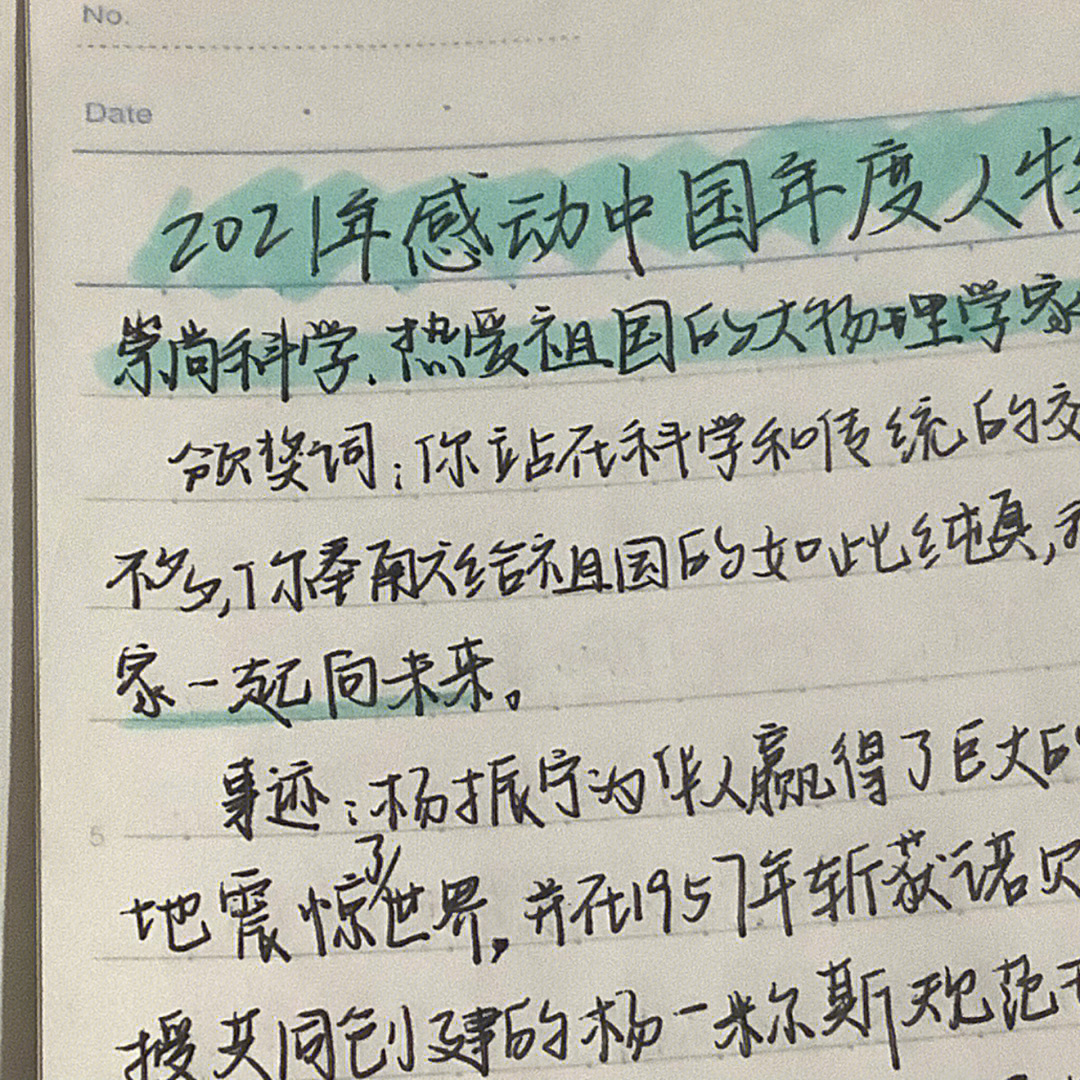 No.
Date
2021年感动中国年度人物
崇尚科学、热爱祖国的大物理学家
颁奖词：你站在科学和传统的交
不多，你奉献给祖国的如此纯真，
家一起向未来。
事迹：杨振宁为华人赢得了巨大的
5
地震惊了世界，并在1957年斩获诺贝
授共同创建的杨一米尔斯规范